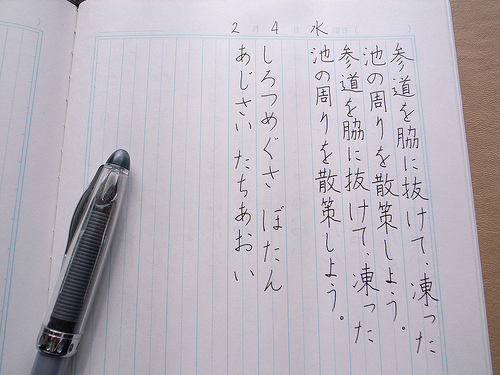 2月4日水曜日(　)
参道を脇に抜けて、凍った
池の周りを散策しよう。
参道を脇に抜けて、凍った
池の周りを散策しよう。
しろつめぐさ　ぼたん
あじさい　たちあおい